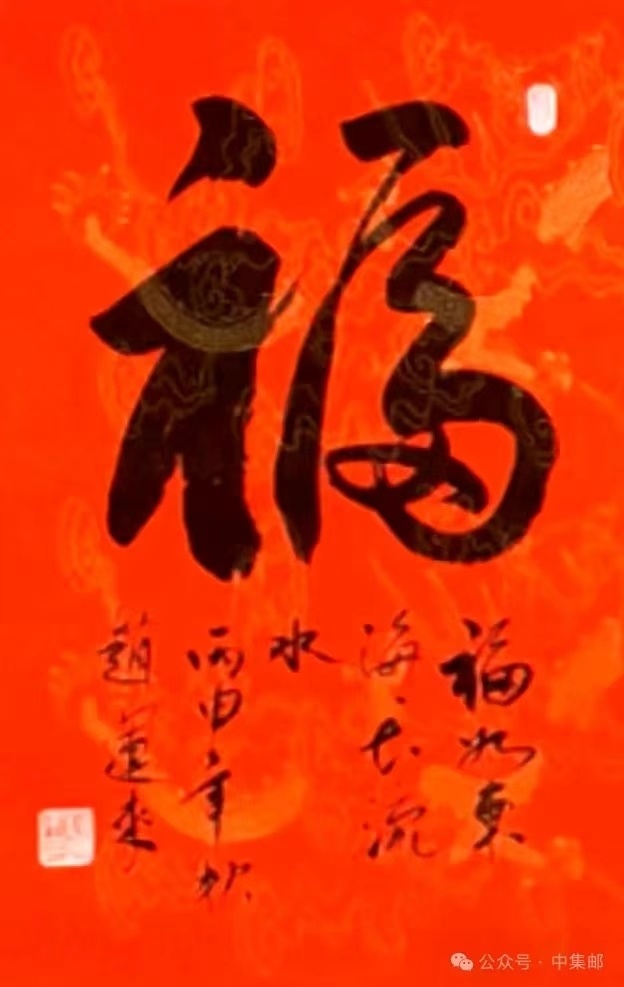 福
福如東
海長流
水
丙申年秋
趙運來
公众号·中集邮